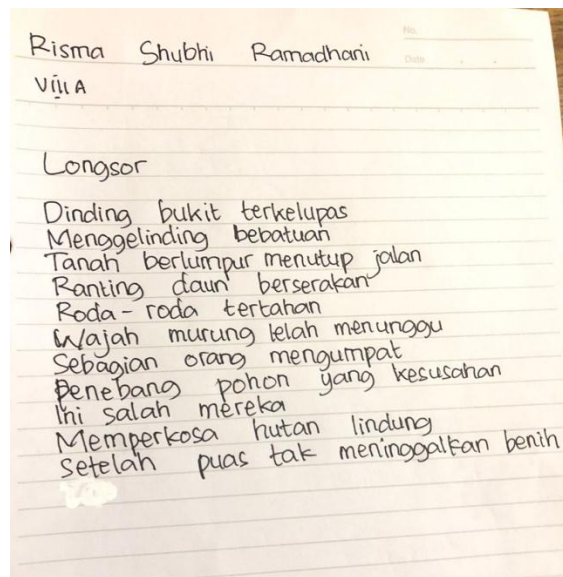 No.
Risma Shubhi Ramadhani
Date
VIII A
Longsor
Dinding bukit terkelupas
Menggelinding bebatuan
Tanah berlumpur menutup jalan
Ranting daun berserakan
Roda-roda tertahan
Wajah murung lelah menunggu
Sebagian orang mengumpat
Penebang pohon yang kesusahan
Ini salah mereka
Memperkosa hutan lindung
Setelah puas tak meninggalkan benih